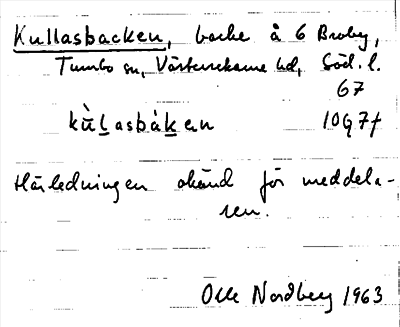 Kullasbacken, backe å 6 Broby,
Tumbo sn, Västerrekarne hd, Söd. l.
67
kùlasbákan 10G7f
Härledningen okänd för meddela-
ren.
Olle Nordberg 1963